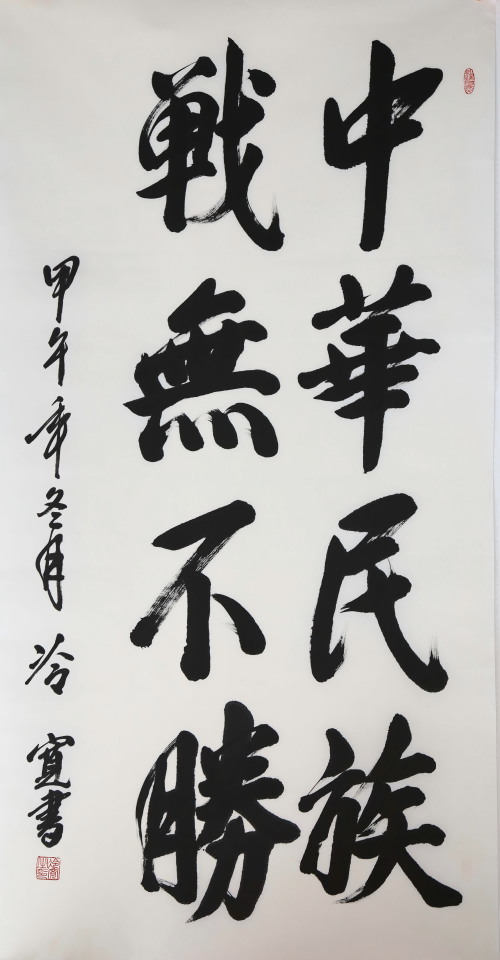 中華民族
戰無不勝
甲午年冬月 冷寬書